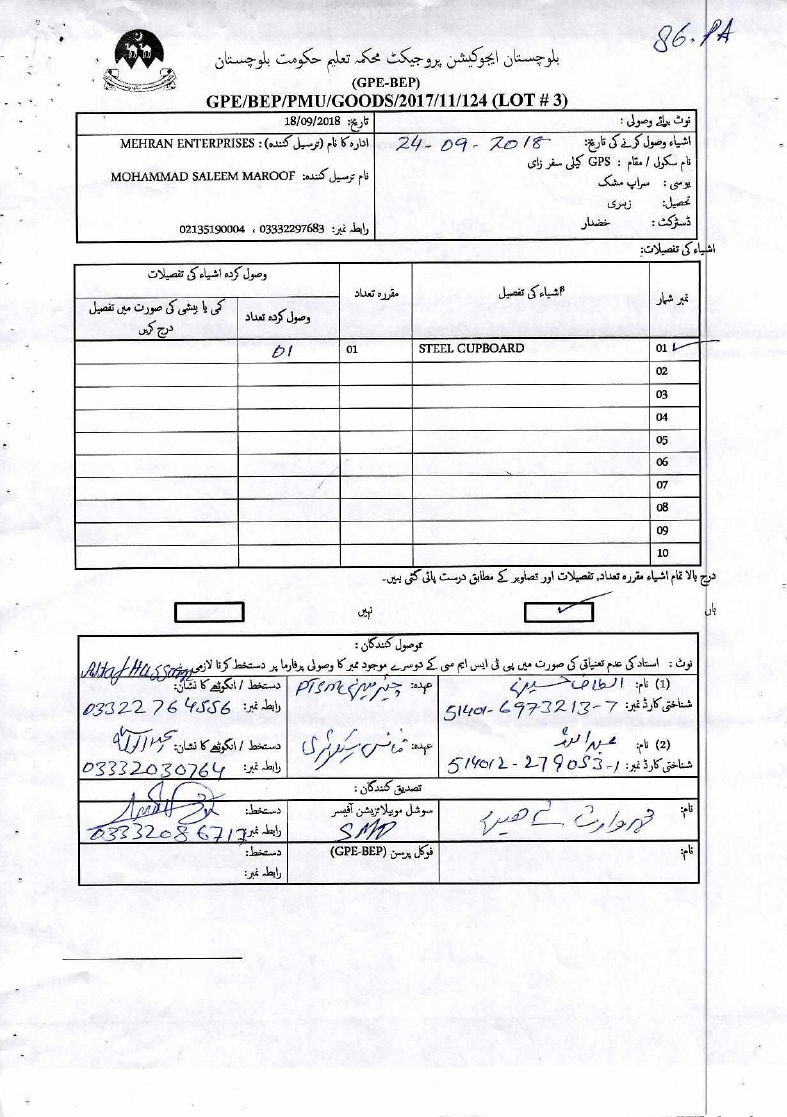 86.PA
بلوچستان ایجوکیشن پروجیکٹ محکمہ تعلیم حکومت بلوچستان
(GPE-BEP)
GPE/BEP/PMU/GOODS/2017/11/124 (LOT # 3)
نوٹ برائے وصولی :
اشیاء وصول کرنے کی تاریخ: 24-09-2018
نام سکول / مقام : GPS کیلی سفر زای
یوسی : سراپ مشک
تحصیل: زہری
ڈسٹرکٹ : خضدار
تاریخ: 18/09/2018
ادارہ کا نام (ترسیل کنندہ) : MEHRAN ENTERPRISES
نام ترسیل کنندہ: MOHAMMAD SALEEM MAROOF
رابطہ نمبر: 03332297683 ، 02135190004
اشیاء کی تفصیلات:
نمبر شمار اشیاء کی تفصیل مقررہ تعداد وصول کردہ اشیاء کی تفصیلات
وصول کردہ تعداد کمی یا بیشی کی صورت میں تفصیل درج کریں
01 STEEL CUPBOARD 01 01
02
03
04
05
06
07
08
09
10
درج بالا تمام اشیاء مقررہ تعداد, تفصیلات اور تصاویر کے مطابق درست پائی گئی ہیں-
ہاں نہیں
موصول کنندگان :
نوٹ : استاد کی عدم تعیناتی کی صورت میں پی ٹی ایس ایم سی کے دوسرے موجود ممبر کا وصولی پرفارما پر دستخط کرنا لازمی
(1) نام: الطاف حسین عہدہ: چیئرمین PTSMC دستخط / انگوٹھے کا نشان: Altaf Hussain
شناختی کارڈ نمبر: 51401-6973213-7 رابطہ نمبر: 03322764556
(2) نام: عبداللہ عہدہ: فنانس سیکرٹری دستخط / انگوٹھے کا نشان:
شناختی کارڈ نمبر: 514012-279053-1 رابطہ نمبر: 03332030764
تصدیق کنندگان :
نام: سوشل موبیلائزیشن آفیسر SMO دستخط:
رابطہ نمبر: 03332086717
نام: فوکل پرسن (GPE-BEP) دستخط:
رابطہ نمبر: